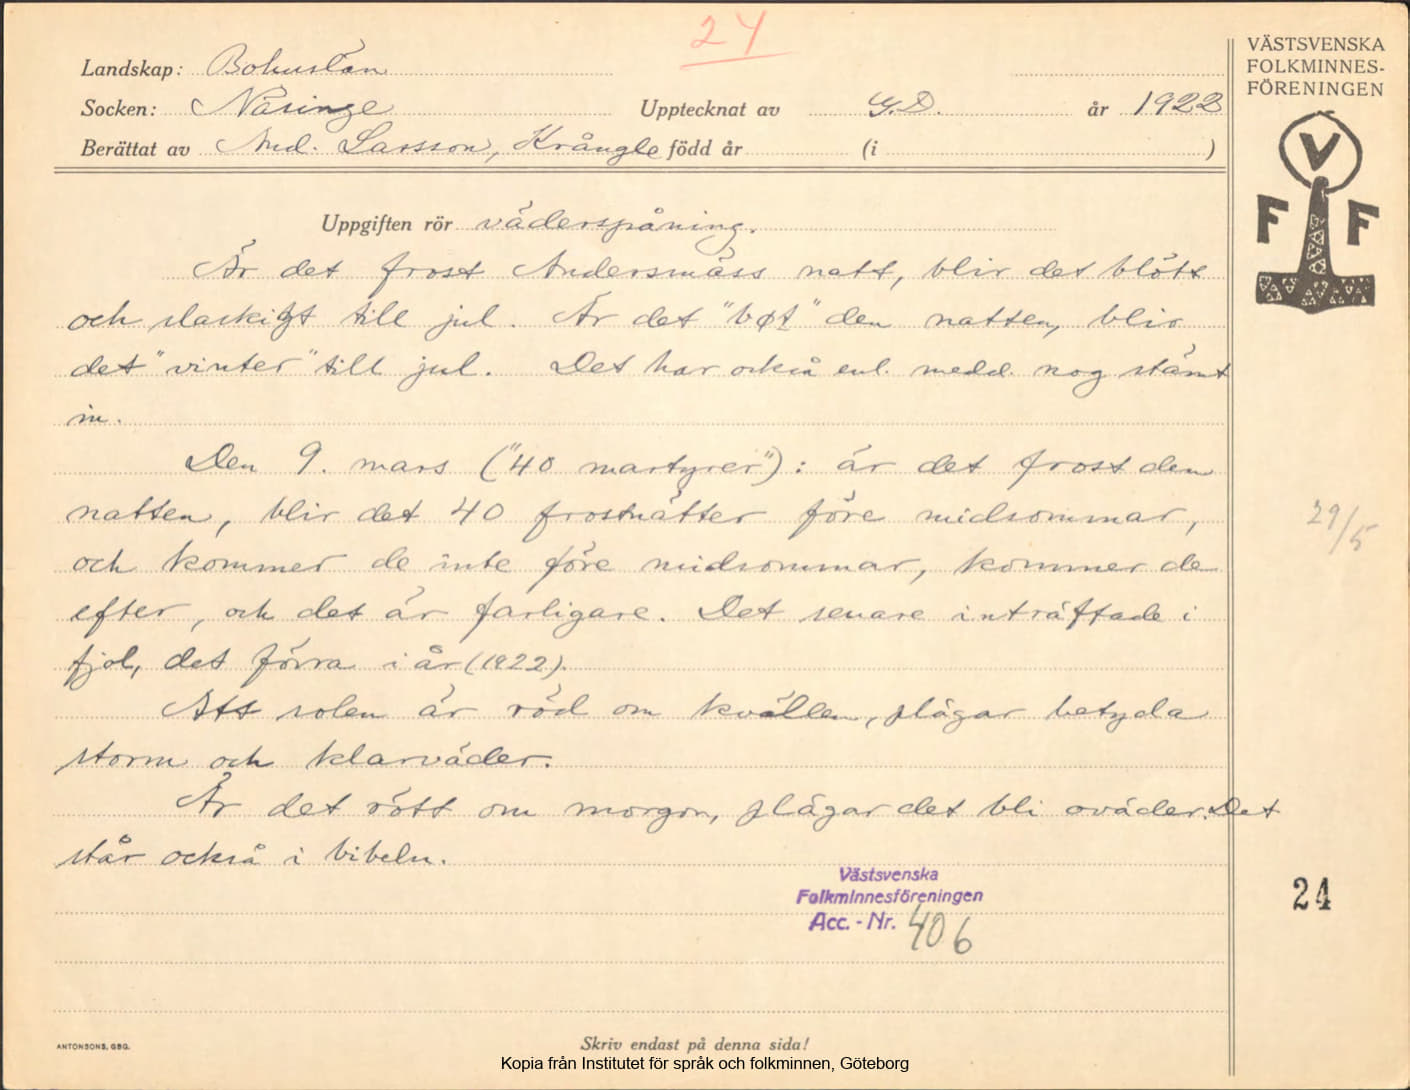 24
Landskap: Bohuslän
Socken: Näsinge Upptecknat av G.D. år 1922
Berättat av And. Larsson, Krångle född år (i )
VÄSTSVENSKA
FOLKMINNES-
FÖRENINGEN
V
F F
Uppgiften rör väderspåning.
Är det frost Andersmäss natt, blir det blött
och slaskigt till jul. Är det "bøt" den natten, blir
det "vinter" till jul. Det har också enl. medd. nog stämt
in.
Den 9. mars ("40 martyrer"): är det frost den
natten, blir det 40 frostnätter före midsommar,
och kommer de inte före midsommar, kommer de
efter, och det är farligare. Det senare inträffade i
fjol, det förra i år (1922).
Att solen är röd om kvällen, plägar betyda
storm och klarväder.
Är det rött om morgon, plägar det bli oväder. Det
står också i bibeln.
29/5
Västsvenska
Folkminnesföreningen
Acc. - Nr. 406
24
ANTONSONS, GBG.
Skriv endast på denna sida!
Kopia från Institutet för språk och folkminnen, Göteborg